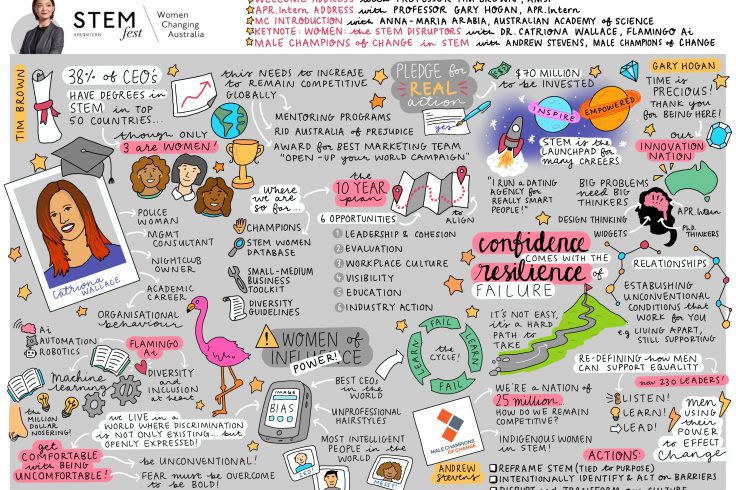 STEM
fest
APR.INTERN
Women
Changing
Australia
APR.Intern ADDRESS with PROFESSOR GARY HOGAN, APR.Intern
MC INTRODUCTION with ANNA-MARIA ARABIA, AUSTRALIAN ACADEMY of SCIENCE
KEYNOTE: WOMEN: the STEM DISRUPTORS with DR. CATRIONA WALLACE, FLAMINGO Ai
MALE CHAMPIONS of CHANGE in STEM with ANDREW STEVENS, MALE CHAMPIONS of CHANGE
TIM BROWN
38% of CEO's
HAVE DEGREES in
STEM in TOP
50 COUNTRIES...
though ONLY
3 are WOMEN!
this NEEDS to INCREASE
to REMAIN COMPETITIVE
GLOBALLY
MENTORING PROGRAMS
RID AUSTRALIA of PREJUDICE
AWARD for BEST MARKETING TEAM
"OPEN-UP your WORLD CAMPAIGN"
PLEDGE for
REAL
action
yes
$70 MILLION
to be INVESTED
INSPIRE
EMPOWERED
STEM is the
LAUNCHPAD for
many CAREERS
GARY HOGAN
TIME is
PRECIOUS!
THANK you
for BEING HERE!
our
INNOVATION
NATION
"I RUN a DATING
AGENCY for
REALLY SMART
PEOPLE!"
BIG PROBLEMS
need BIG
THINKERS
DESIGN THINKING
WIDGETS
APR.Intern
PhD.
THINKERS
Catriona
WALLACE
POLICE
WOMAN
MGMT
CONSULTANT
NIGHTCLUB
OWNER
ACADEMIC
CAREER
ORGANISATIONAL
behaviour
Where we
are so
far...
CHAMPIONS
STEM WOMEN
DATABASE
SMALL-MEDIUM
BUSINESS
TOOLKIT
DIVERSITY
GUIDELINES
the
10 YEAR
plan
to
ALIGN
6 OPPORTUNITIES
1 LEADERSHIP & COHESION
2 EVALUATION
3 WORKPLACE CULTURE
4 VISIBILITY
5 EDUCATION
6 INDUSTRY ACTION
confidence
COMES WITH THE
resilience of
FAILURE
IT'S NOT EASY,
it's a HARD
PATH to
TAKE
RELATIONSHIPS
ESTABLISHING
UNCONVENTIONAL
CONDITIONS that
WORK for YOU
e.g LIVING APART,
STILL SUPPORTING
Ai
AUTOMATION
ROBOTICS
FLAMINGO
Ai
Machine
learning
DIVERSITY
and
INCLUSION
at heart
the
MILLION
DOLLAR
NOSERING!
we LIVE in a
WORLD WHERE DISCRIMINATION
is NOT ONLY EXISTING... but
OPENLY EXPRESSED!
get
COMFORTABLE
with BEING
UNCOMFORTABLE!
be UNCONVENTIONAL!
FEAR must be OVERCOME
to be BOLD!
WOMEN of
INFLUENCE
POWER!
IMAGE
BIAS
BEST CEOs
in the
WORLD
UNPROFESSIONAL
HAIRSTYLES
MOST INTELLIGENT
PEOPLE in the
WORLD
CEO
MESSY
FAIL
LEARN
FAIL
LEARN
the
CYCLE!
MALE CHAMPIONS
OF CHANGE
ANDREW
Stevens
WE'RE a NATION of
25 million
HOW DO WE REMAIN
COMPETITIVE?
INDIGENOUS WOMEN
in STEM!
RE-DEFINING how MEN
CAN SUPPORT EQUALITY
now 230 LEADERS!
LISTEN!
LEARN!
LEAD!
men
USING
their
POWER
to EFFECT
Change
ACTIONS:
REFRAME STEM (TIED to PURPOSE)
INTENTIONALLY IDENTIFY & ACT on BARRIERS